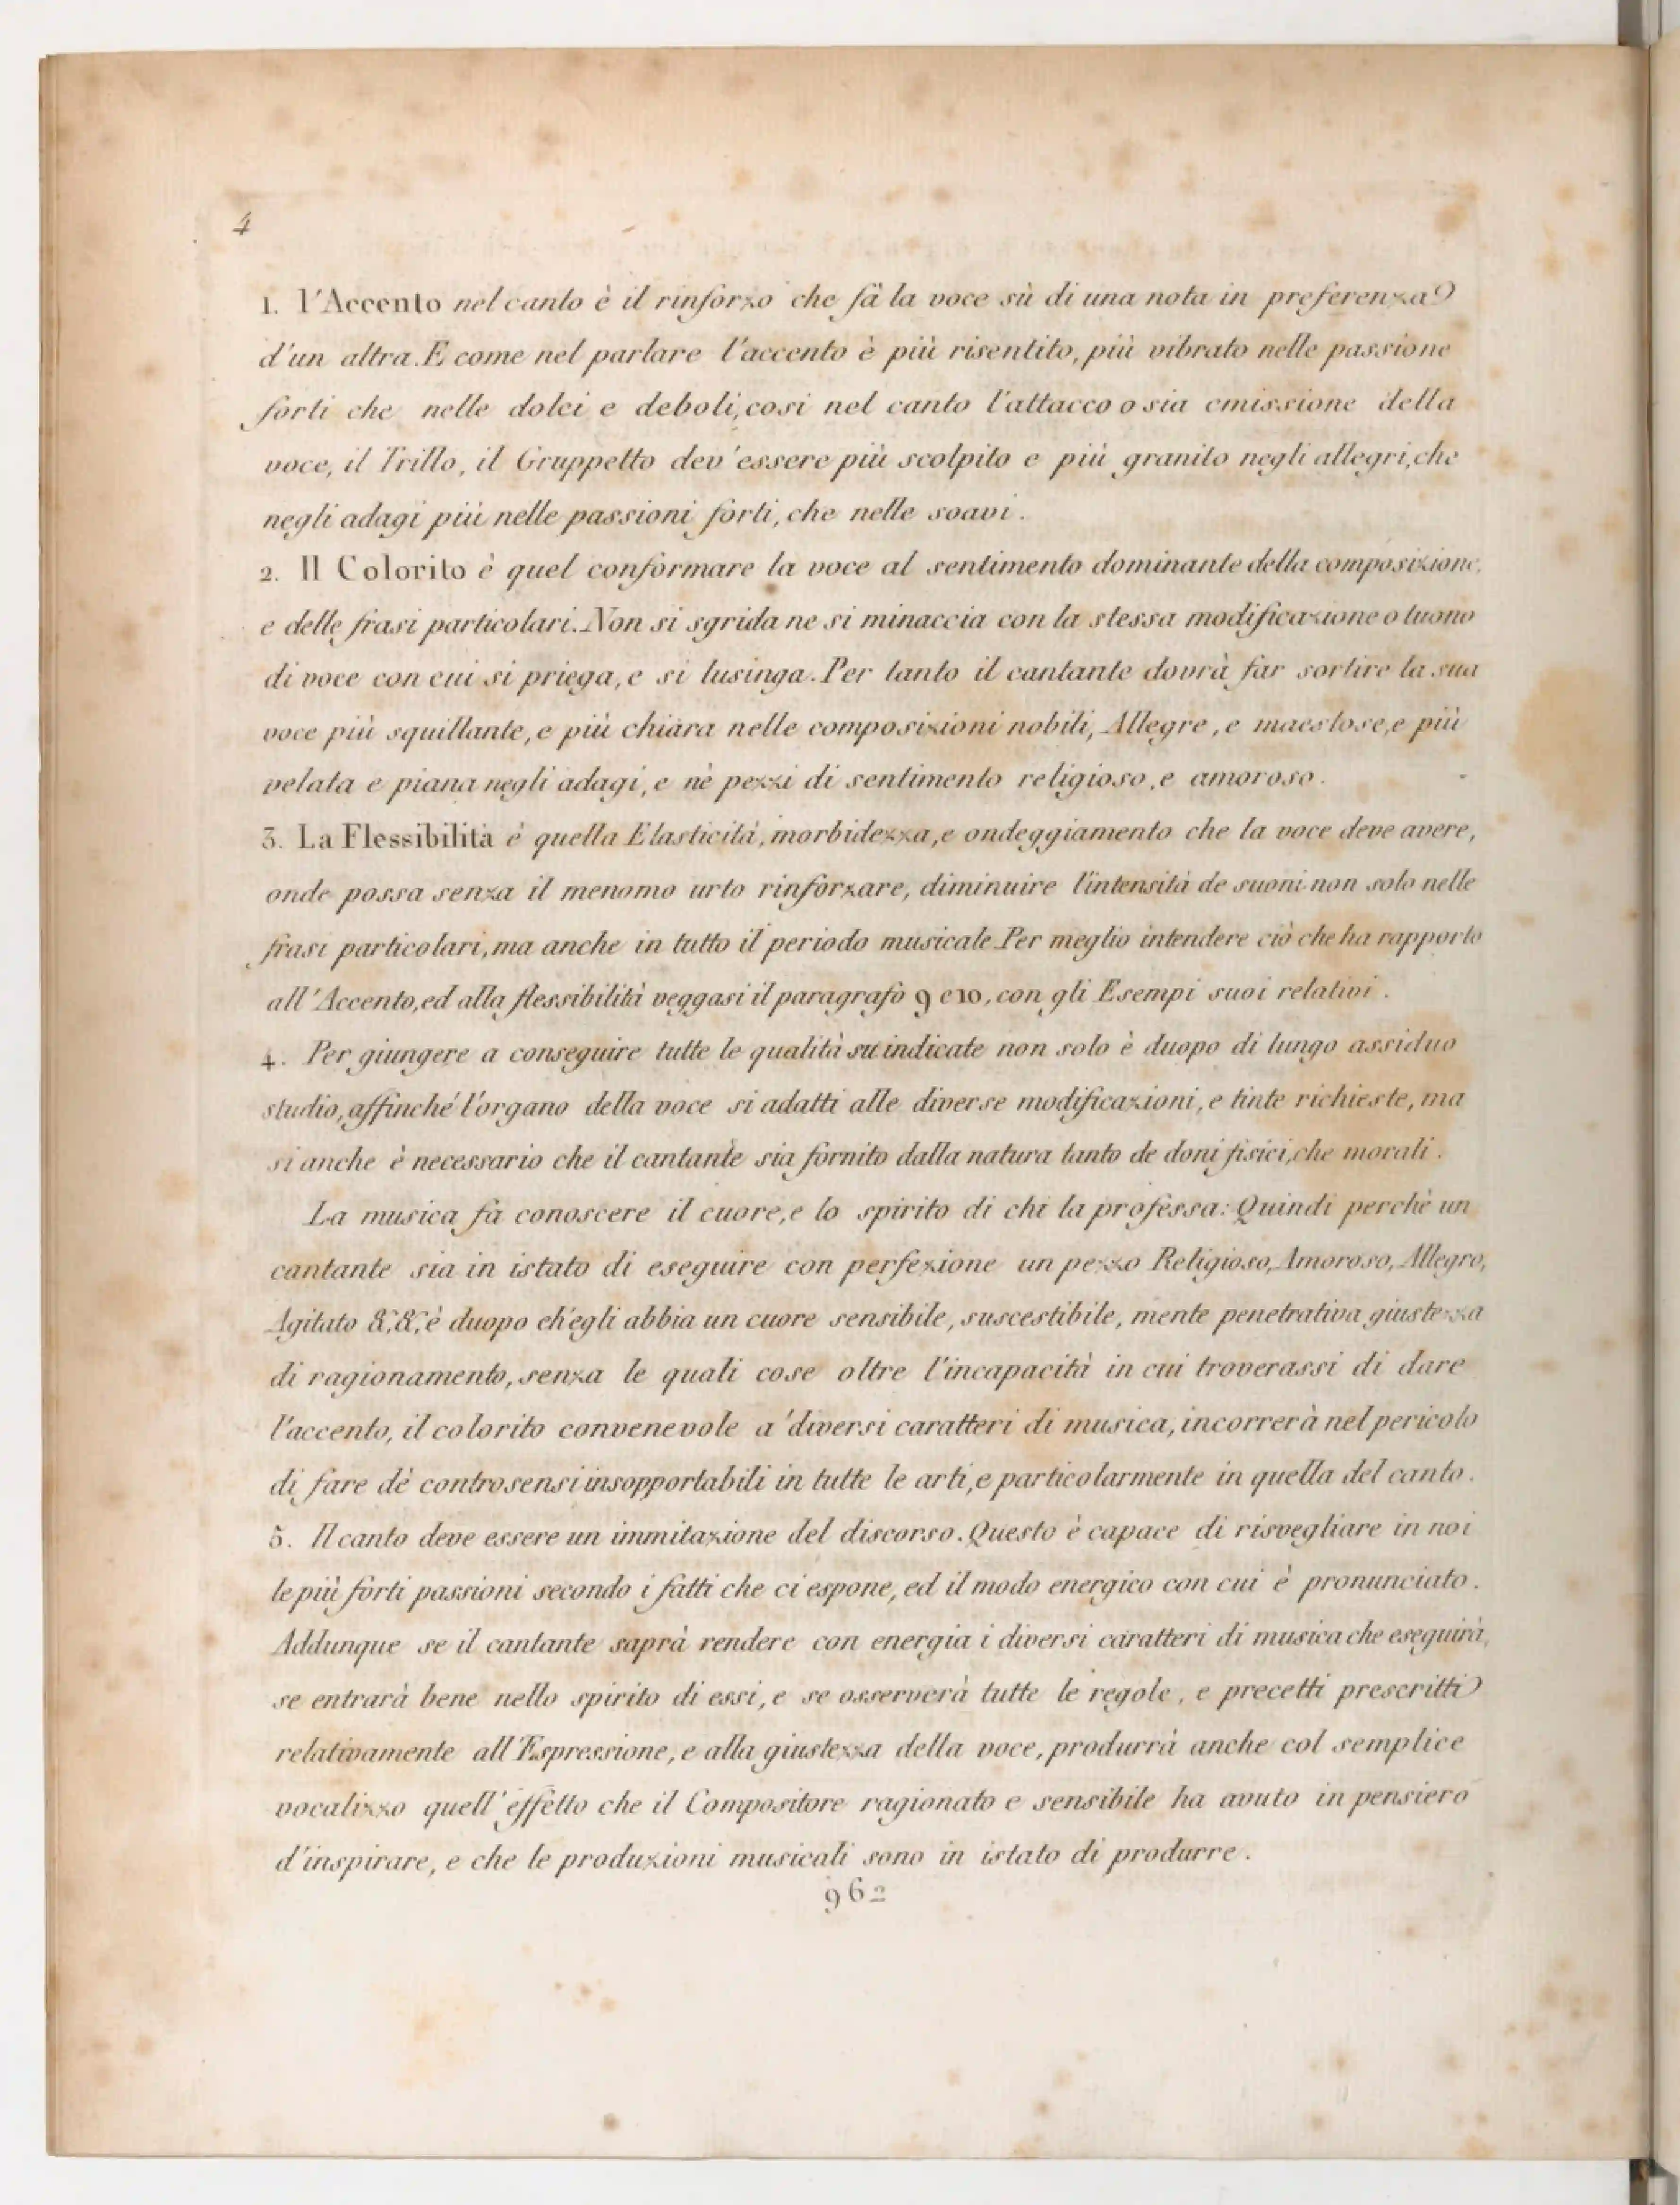 4
1. l'Accento nel canto è il rinforzo che fà la voce sù di una nota in preferenza
d'un altra. E come nel parlare l'accento è più risentito, più vibrato nelle passione
forti che nelle dolci e deboli, cosi nel canto l'attacco o sia emissione della
voce, il Trillo, il Gruppetto dev'essere più scolpito e più granito negli allegri, che
negli adagi più nelle passioni forti, che nelle soavi.
2. Il Colorito è quel conformare la voce al sentimento dominante della composizione,
e delle frasi particolari. Non si sgrida ne si minaccia con la stessa modificazione o tuono
di voce con cui si priega, e si lusinga. Per tanto il cantante dovrà far sortire la sua
voce più squillante, e più chiara nelle composizioni nobili, Allegre, e maestose, e più
velata e piana negli adagi, e nè pezzi di sentimento religioso, e amoroso.
3. La Flessibilità è quella Elasticità, morbidezza, e ondeggiamento che la voce deve avere,
onde possa senza il menomo urto rinforzare, diminuire l'intensità de suoni non solo nelle
frasi particolari, ma anche in tutto il periodo musicale. Per meglio intendere ciò che ha rapporto
all'Accento, ed alla flessibilità veggasi il paragrafo 9 e 10, con gli Esempi suoi relativi.
4. Per giungere a conseguire tutte le qualità su indicate non solo è duopo di lungo assiduo
studio, affinché l'organo della voce si adatti alle diverse modificazioni, e tinte richieste, ma
si anche è necessario che il cantante sia fornito dalla natura tanto de doni fisici, che morali.
La musica fà conoscere il cuore, e lo spirito di chi la professa: Quindi perchè un
cantante sia in istato di eseguire con perfezione un pezzo Religioso, Amoroso, Allegro,
Agitato &, &, è duopo ch'egli abbia un cuore sensibile, suscestibile, mente penetrativa giustezza
di ragionamento, senza le quali cose oltre l'incapacità in cui troverassi di dare
l'accento, il colorito convenevole a'diversi caratteri di musica, incorrerà nel pericolo
di fare dè controsensi insopportabili in tutte le arti, e particolarmente in quella del canto.
5. Il canto deve essere un immitazione del discorso. Questo è capace di risvegliare in noi
le più forti passioni secondo i fatti che ci espone, ed il modo energico con cui è pronunciato.
Addunque se il cantante saprà rendere con energia i diversi caratteri di musica che eseguirà,
se entrarà bene nello spirito di essi, e se osserverà tutte le regole, e precetti prescritti
relativamente all'Espressione, e alla giustezza della voce, produrrà anche col semplice
vocalizzo quell'effetto che il Compositore ragionato e sensibile ha avuto in pensiero
d'inspirare, e che le produzioni musicali sono in istato di produrre.
962